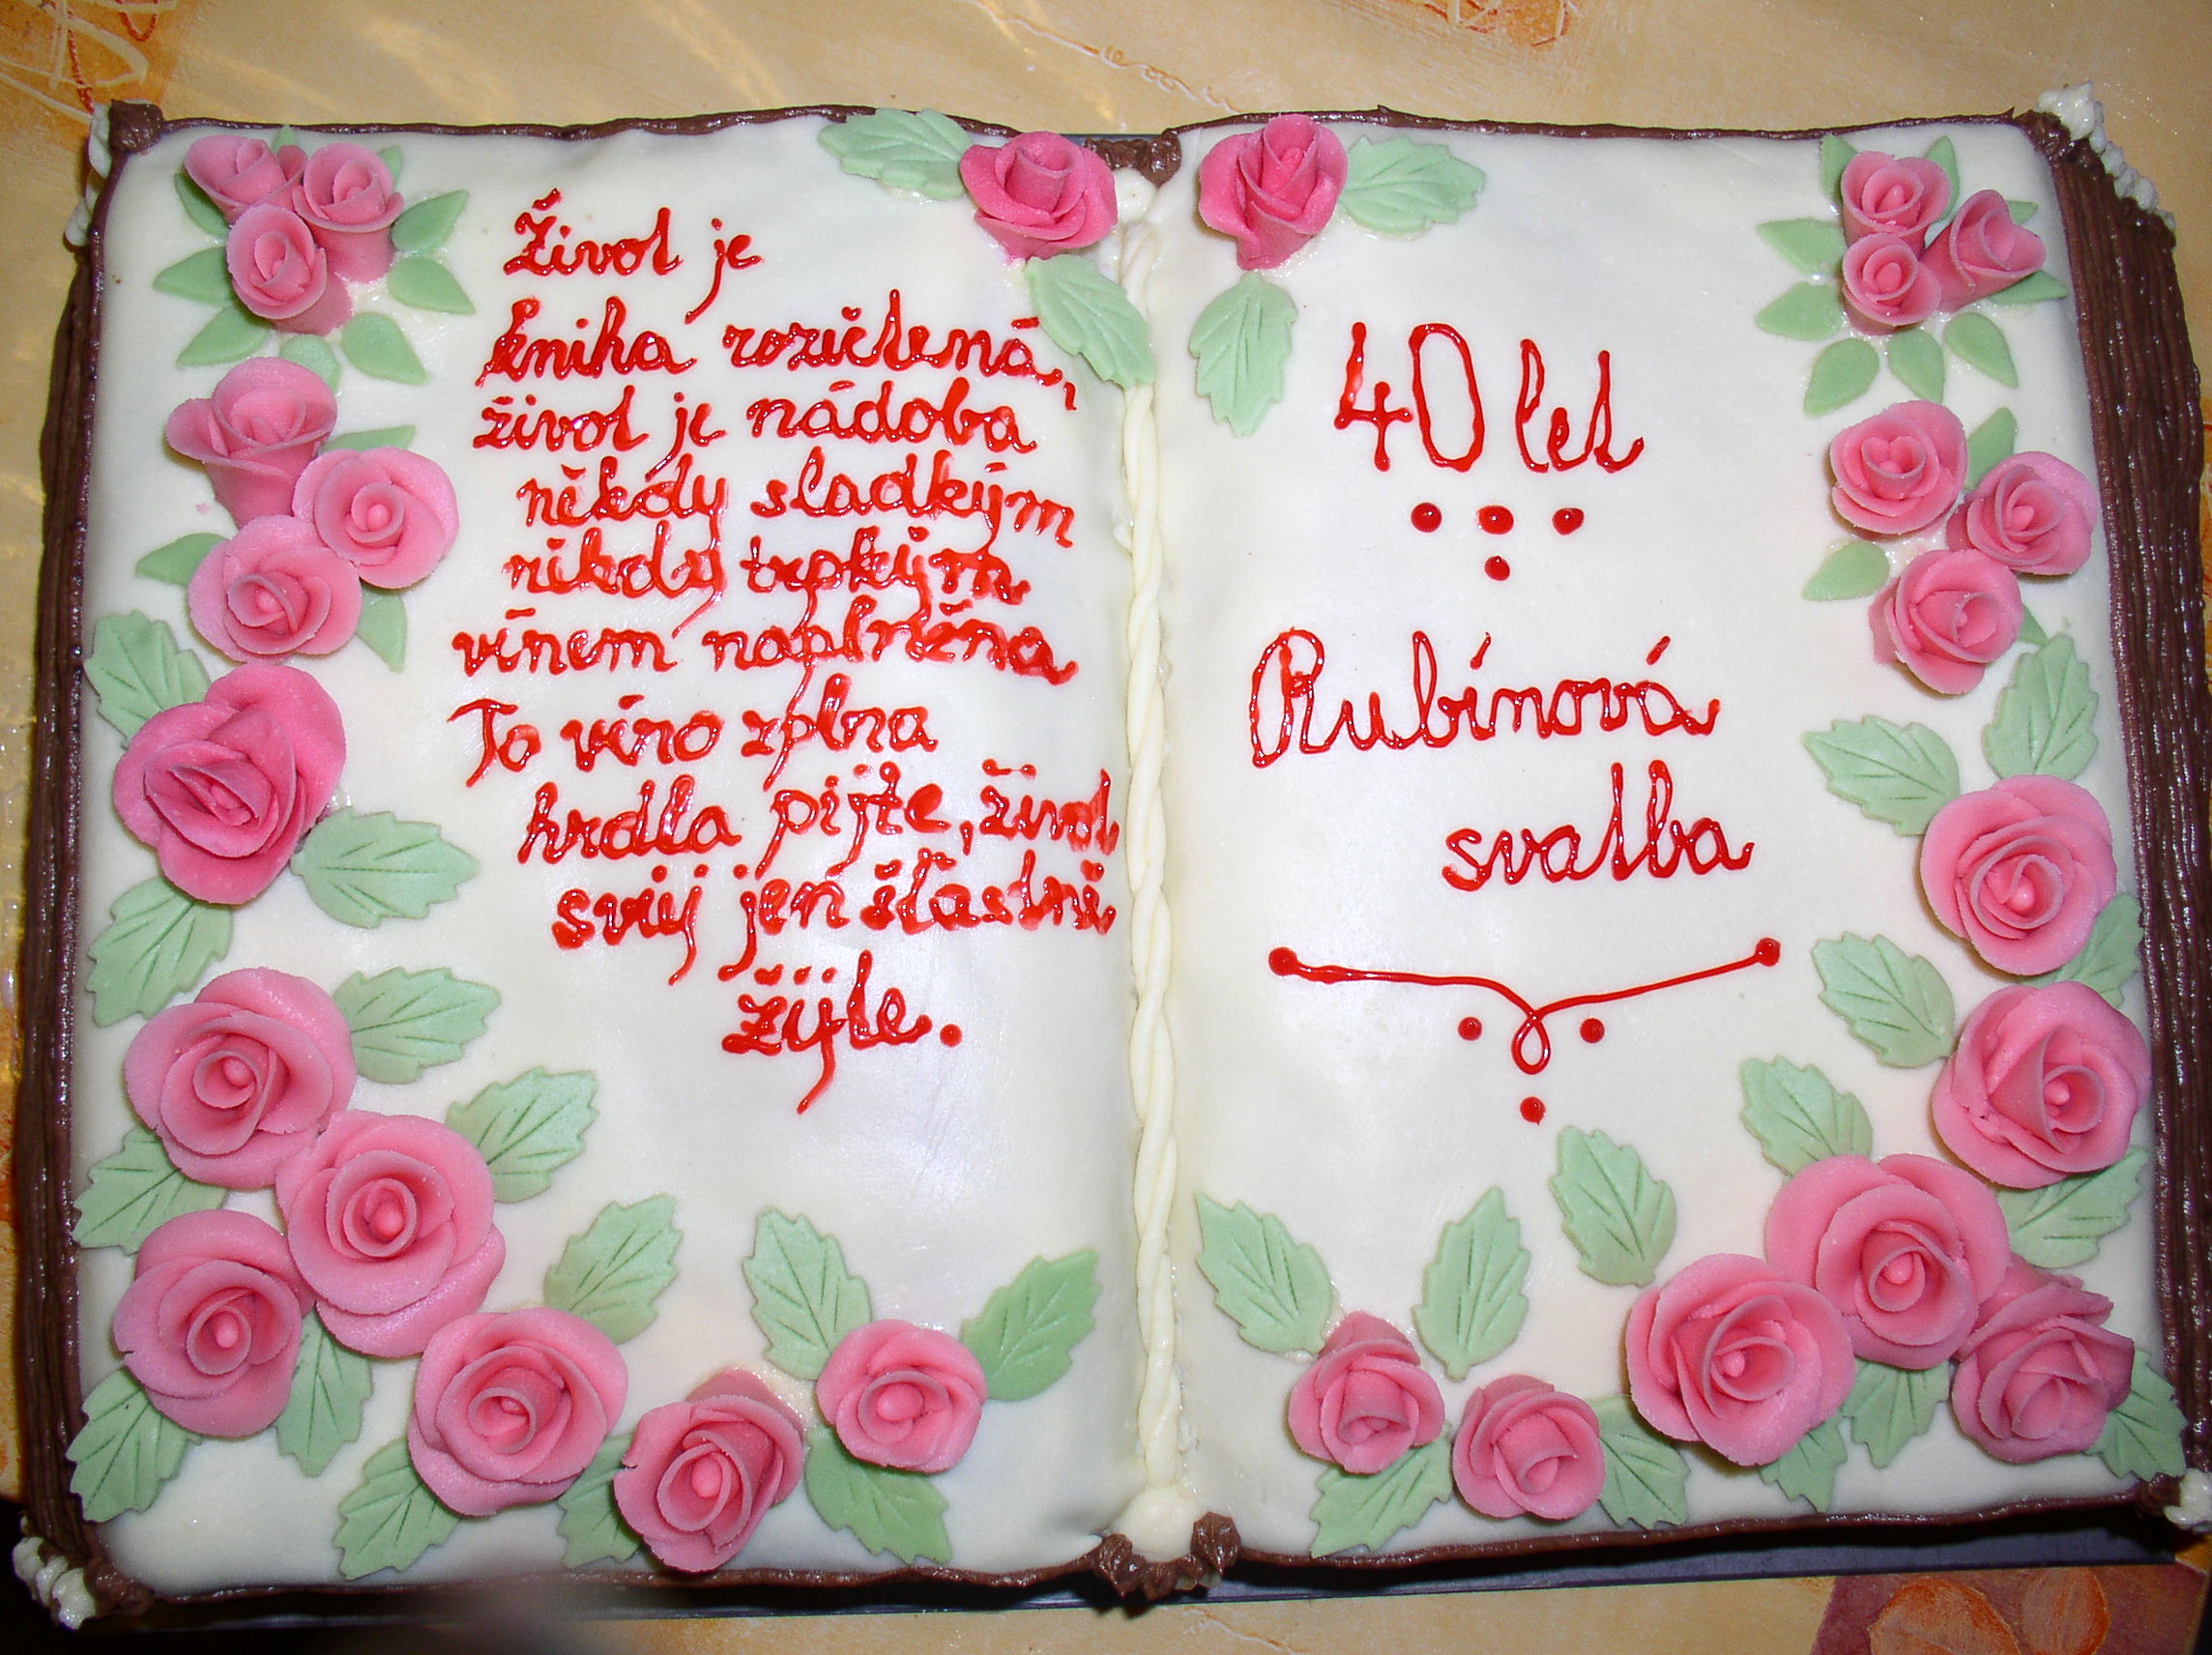 Život je
kniha rozučlená,
život je nádoba
někdy sladkým
někdy trpkým
vínem naplněna
To víno zplna
hrdla pijte, život
svůj jen šťastně
žijte.
40 let
Rubínová
svatba